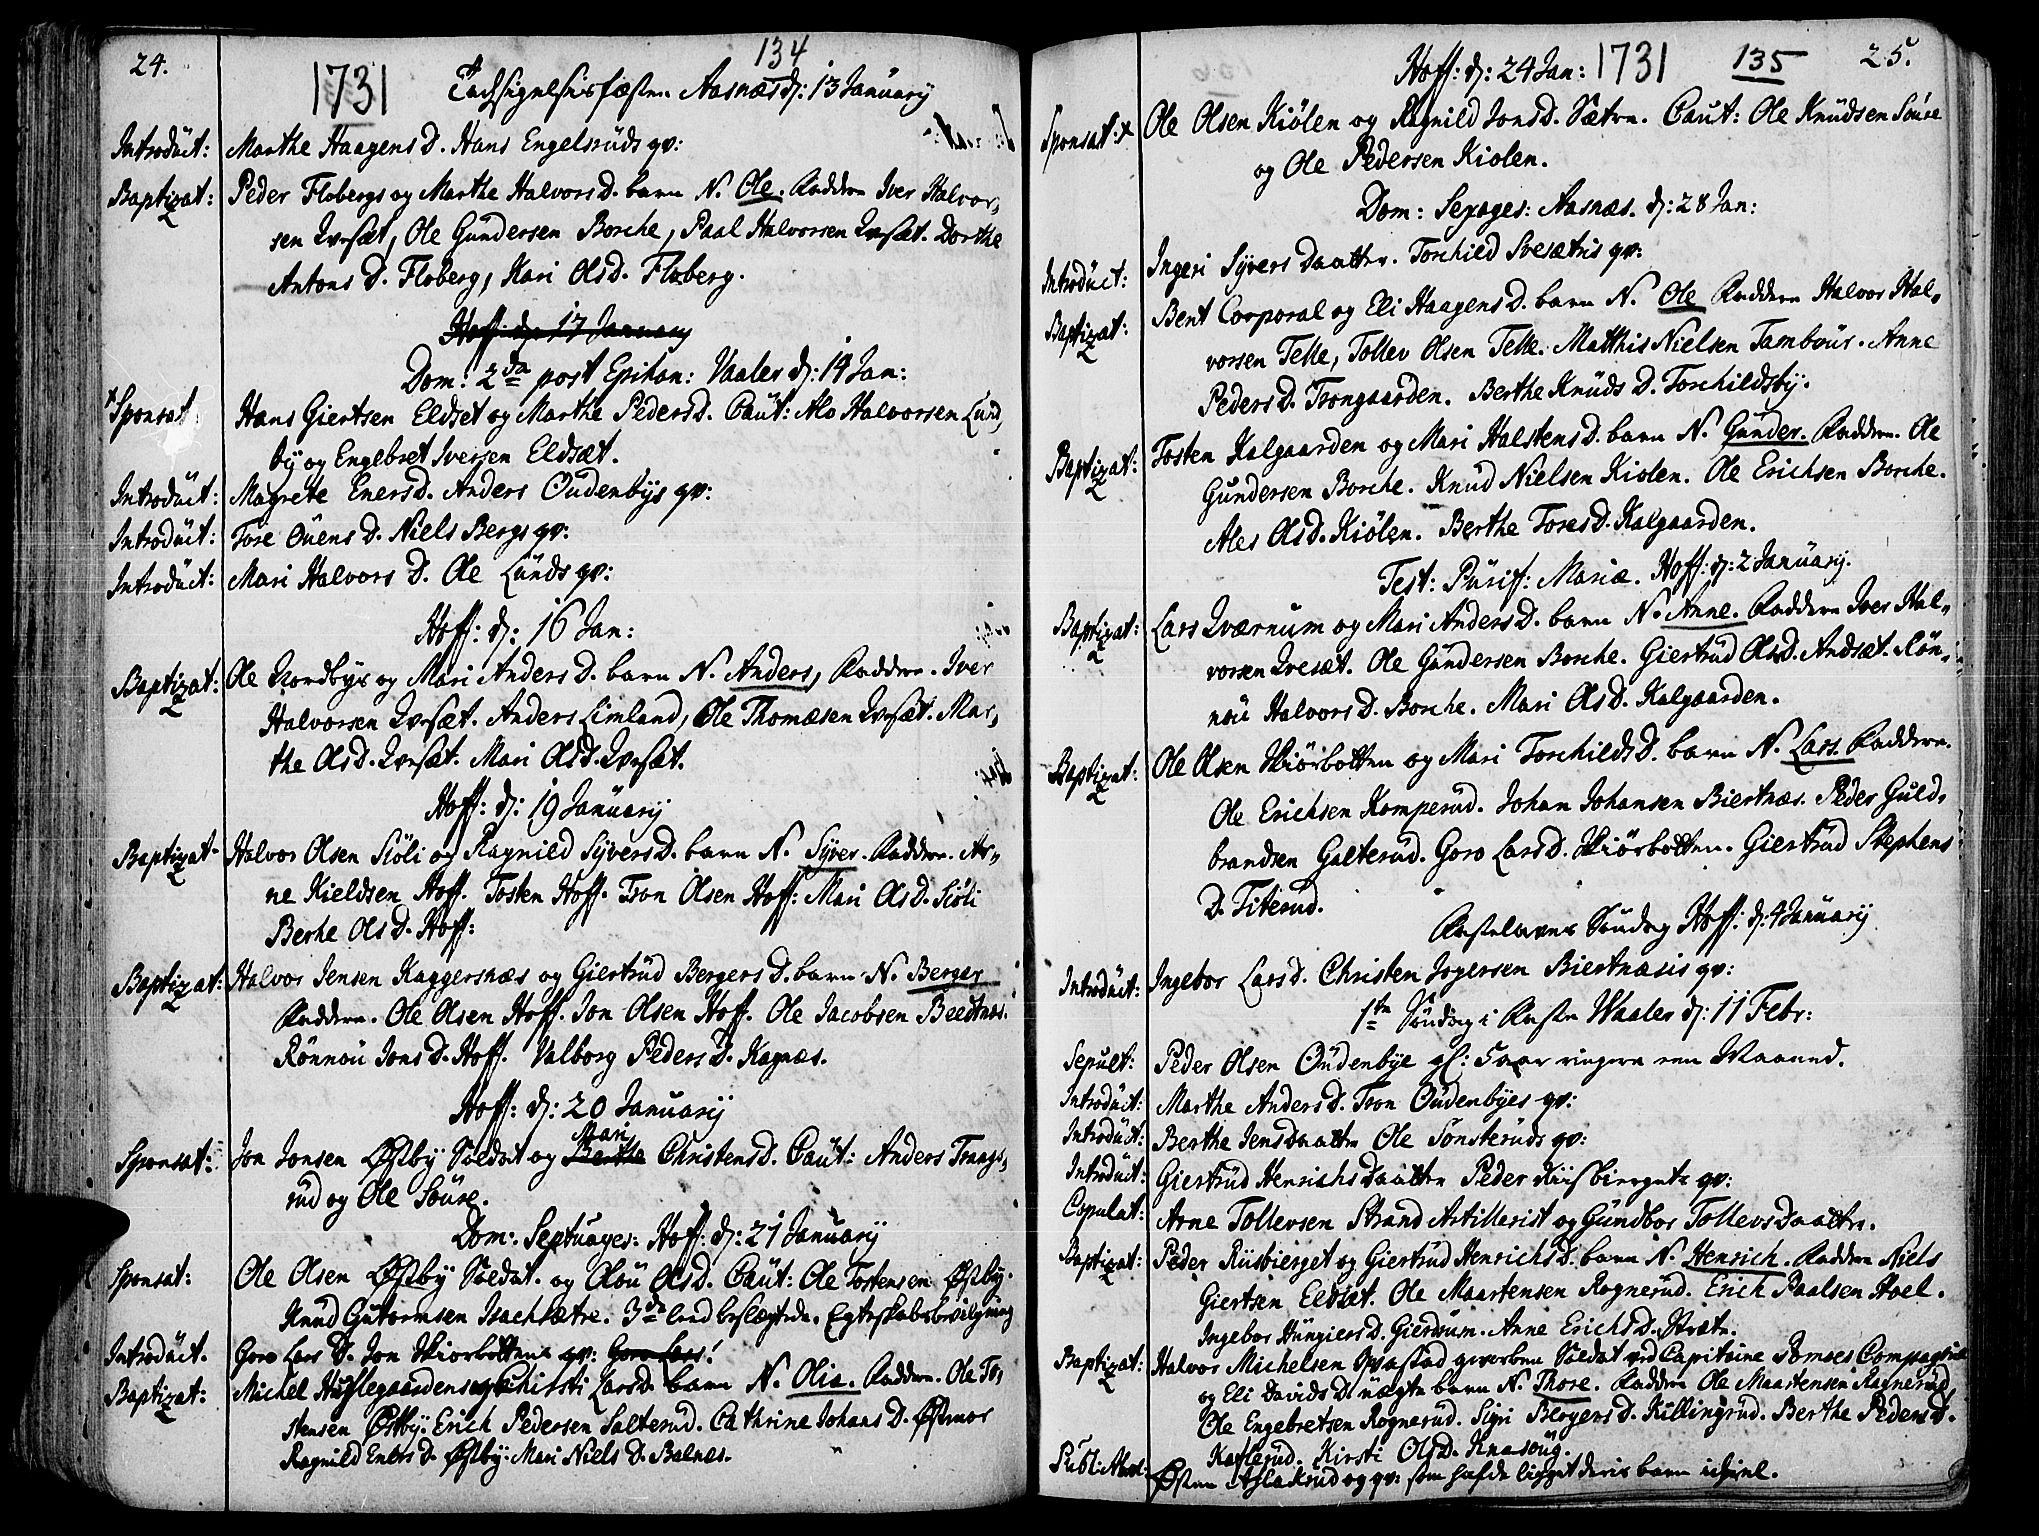 24.
134
1731
Tachsigelsis fæsten Aasnæs d: 13 January
Introduct: Marthe Haagens D. Hans Engelsruds qv:
Baptizat: Peder Flobergs og Marthe Halvors D. barn N. Ole. Faddere Iver Halvor,
sen Qvesæt, Ole Gundersen Borche, Paal Halvorsen Qvesæt. Dorthe
Antons D. Floberg, Kari Ols D. Floberg.
Hoff: d: 17 January
Dom: 2da post Epihan: Vaaler d: 14 Jan:
Sponsat: Hans Giertsen Eldset og Marthe Peders D. Caut: Alv Halvorsen Lund,
by og Engebret Iversen Eldsæt.
Introduct: Magrete Eners D. Anders Oudenbys qv:
Introduct: Tore Ouens D. Niels Bergs qv:
Introduct: Mari Halvors D. Ole Lunds qv:
Hoff: d: 16 Jan:
Baptizat: Ole Nordbys og Mari Anders D. barn N. Anders, Faddere. Iver
Halvorsen Qvesæt. Anders Limland, Ole Thomæsen Qvesæt. Mar,
the Ols D. Qvesæt. Mari Ols D. Qvesæt.
Hoff: d: 19 January
Baptizat: Halvor Olsen Siöli og Ragnild Syvers D. barn N. Syver. Faddere. Ar,
ne Kieldsen Hoff. Tosten Hoff. Tron Olsen Hoff: Mari Ols D. Siöli
Berhe Ols D. Hoff:
Baptizat: Halvor Jensen Kaggersnæs og Giertrud Bergers D. barn N. Berger
Faddere. Ole Olsen Hoff. Jon Olsen Hoff. Ole Jacobsen Beedtnæs.
Rönnou Jons D. Hoff. Valborg Peders D. Kagnæs.
Hoff: d: 20 January
Mari
Sponsat: Jon Jonsen Østby Soldat og Berthe Christens D. Caut: Anders Traags,
rud og Ole Soure.
Dom: Septuages: Hoff: d: 21 January
Sponsat: Ole Olsen Østby Soldat. og Olou Ols D. Caut: Ole Tostensen Østby.
Knud Gutormsen Isachsætre. 3de leed beslegtede. Egteskabsbevilgning
Introduct. Goro Lars D. Jon Skiorbottens qv: Goro Lars!
Baptizat: Michel Huslegaardens og Chirsti Lars D. barn N. Olia. Faddere. Ole To,
stensen Østby. Erich Pedersen Salterud. Cathrine Johans D. Østmoe
Ragnild Eners D. Østby. Mari Niels D. Balnes.
Hoff: d: 24 Jan: 1731 135 25.
Sponsat: Ole Olsen Kiölen og Ragnild Jons D. Sætre. Caut: Ole Knudsen Soure
og Ole Pedersen Kiolen.
Dom: Sexages: Aasnæs. d: 28 Jan:
Introduct: Ingeri Syvers Daatter. Torchild Svesætris qv:
Baptizat: Bent Corporal og Eli Haagens D. barn N. Ole Faddere Halvor Hal,
vorsen Telle, Tollev Olsen Telle. Matthis Nielsen Tambour. Anne
Peders D. Trongaarden. Berthe Knuds D. Torchildsby.
Baptizat: Tosten Kalgaarden og Mari Halstens D. barn N. Gunder. Faddere. Ole
Gundersen Borche. Knud Nielsen Kiolen. Ole Erichsen Borche.
Ales Ols D. Kiölen. Berthe Tores D. Kalgaarden.
Fest: Purif: Mariæ. Hoff: d: 2 January.
Baptizat: Lars Qværnum og Mari Anders D. barn N. Anne. Faddere Iver Hal,
vorsen Qvesæt. Ole Gundersen Borche. Giertrud Ols D. Andsæt. Rön,
nou Halvors D. Borche. Mari Ols D. Kalgaarden.
Baptizat: Ole Olsen Skiörbotten og Mari Torchilds D. barn N. Lars. Faddere.
Ole Erichsen Komperud. Johan Johansen Biertnæs. Peder Guld,
brandsen Galterud. Goro Lars D. Skiörbotten. Giertrud Stephens
D. Titerud.
Fastelavns Söndag Hoff: d: 4 January
Introduct: Ingebor Lars D. Christen Jogersen Biertnæsis qv:
1te Söndag i Faste Waaler d: 11 Febr:
Sepult: Peder Olsen Oudenbye gl: 5 aar ringere een Maaned.
Introduct: Marthe Anders D. Tron Oudenbyes qv:
Introduct: Berthe Jens Daatter Ole Sönsteruds qv:
Introduct: Giertrud Henrichs Daatter Peder Riisbiergets qv:
Copulat: Arne Tollevsen Strand Artillerist og Gundbor Tollevs Daatter.
Baptizat: Peder Riisbierget og Giertrud Henrichs D. barn N. Henrich. Faddere Niels
Giertsen Eldsæt. Ole Maartensen Rognerud. Erich Paalsen Hoel.
Ingebor Hüngiers D. Gierdrum. Anne Erichs D. Strætr.
Baptizat: Halvor Michelsen Opastad gevorben Soldat ved Capitaine Tomses Compagnie
og Eli Davids D. uægte barn N. Thore. Faddere Ole Maartensen Rognerud,
Ole Engebretsen Rognerud. Sigri Bergers D. Killingrud. Berthe Peders D.
Karterud. Kirsti Ols D. Knasoug.
Publ: Absol: Østen Aslakrud og qv: som hafde ligget deris barn ihiel.